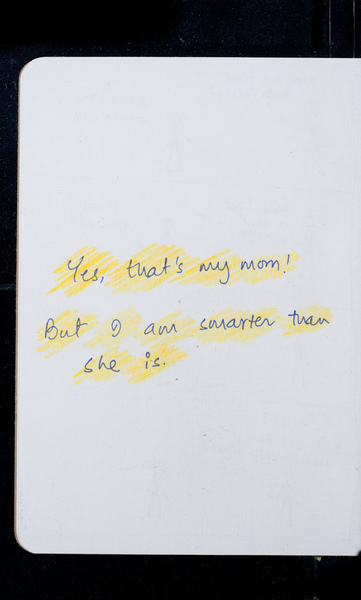 Yes, that's my mom!
But I am smarter than
she is.